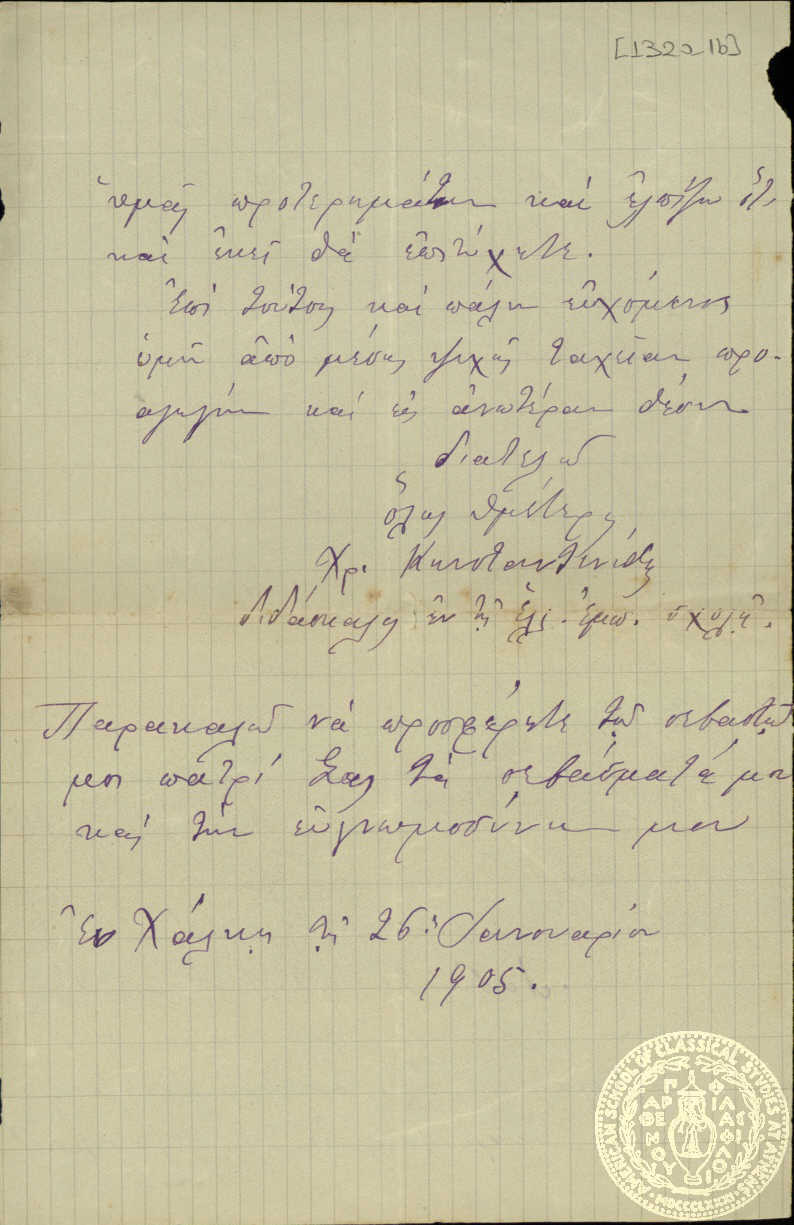 [132a 1b]
ὑμᾶς προτερημάτων καὶ ἐλπίζω ὅτι
καὶ ἐκεῖ θὰ ἐπιτύχητε.
Ἐπὶ τούτοις καὶ πάλιν εὐχόμενος
ὑμῖν ἀπὸ μέσης ψυχῆς ταχεῖαν προ-
αγωγὴν καὶ εἰς ἀνωτέραν θέσιν
διατελῶ
ὅλως ὑμέτερος
Χρ. Κωνσταντινίδης
διδάσκαλος ἐν τῇ Ἑλ. Ἐμπ. σχολῇ.
Παρακαλῶ νὰ προσφέρητε τῷ σεβαστῷ
μοι πατρί Σας τὰ σεβάσματά μου
καὶ τὴν εὐγνωμοσύνην μου
Ἐν Χάλκῃ τῇ 26ῃ Ἰανουαρίου
1905.
AMERICAN SCHOOL OF CLASSICAL STUDIES AT ATHENS
ΠΑΡΘΕΝΟΥ ΦΙΛΑΣ ΦΙΛΟΙ
MDCCCLXXXI